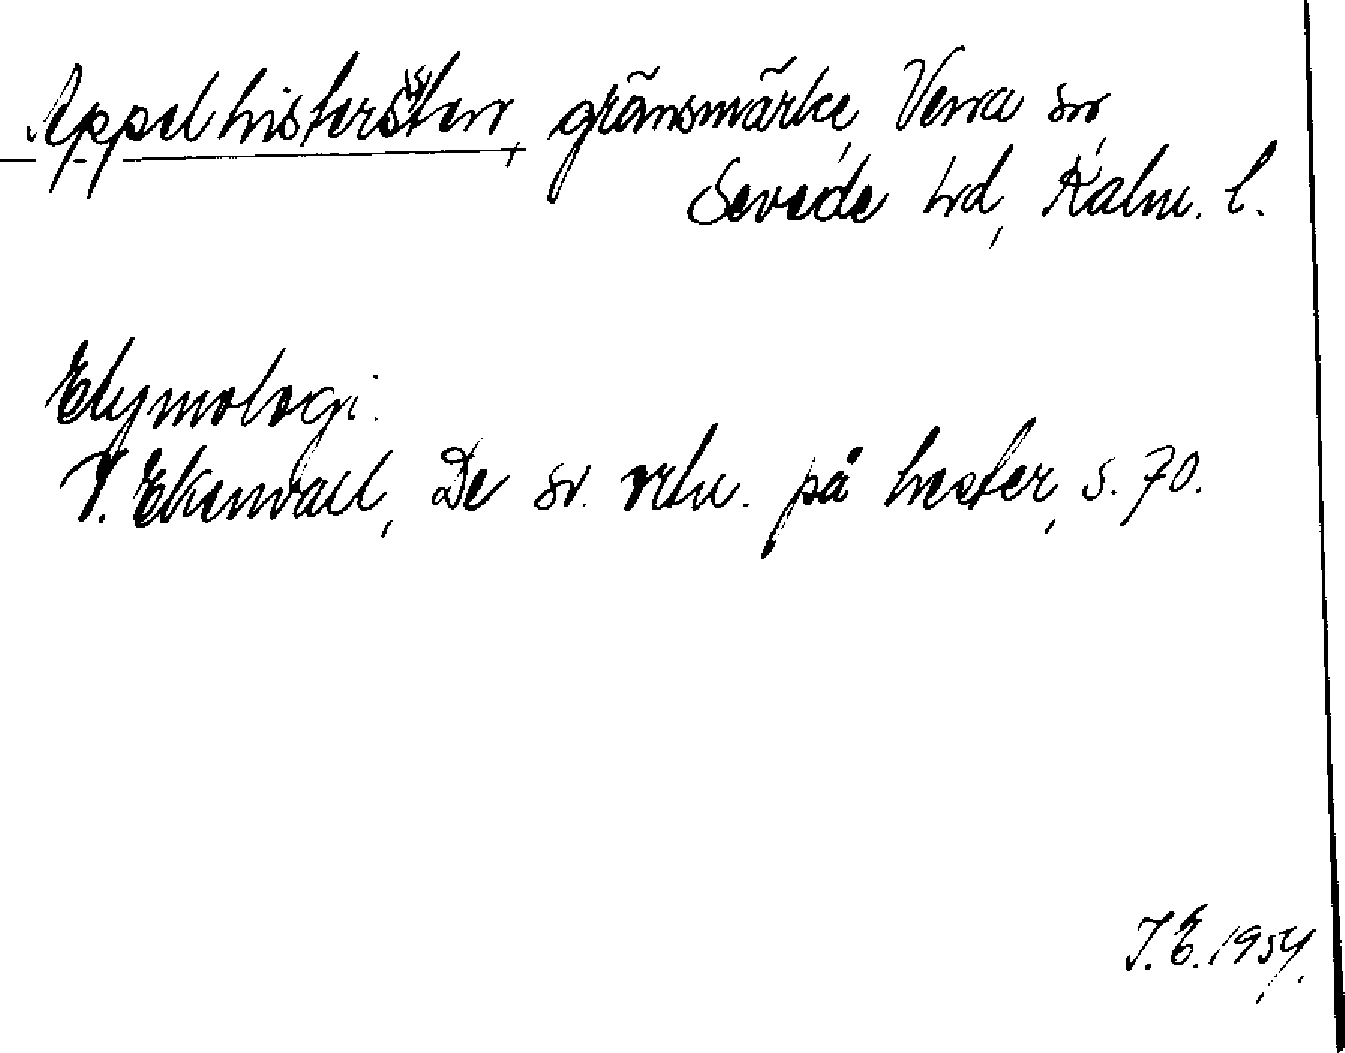 Appelhistersten, gränsmärke, Vena sn,
Sevede hd, Kalm. l.
Etymologi:
V. Ekenvall, De sv. vrbn. på hester, s. 70.
1954.